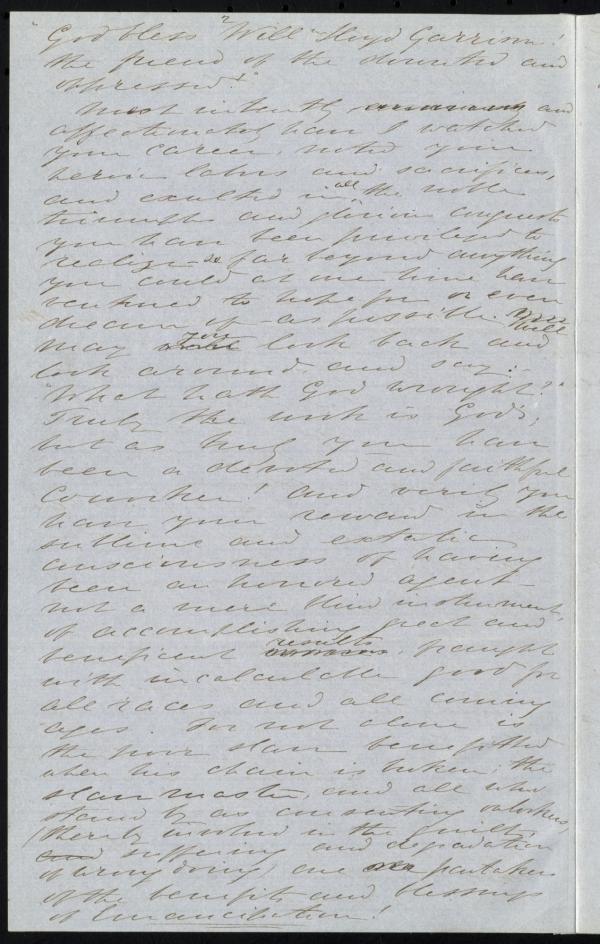 "God bless Will Lloyd Garrison!
the friend of the downtrod and
oppressed!"
Most intently and
affectionately have I watched
your career, noted your
heroic labors and sacrifices,
and exulted in all the noble
triumphs and glorious conquests
you have been privileged to
realize – so far beyond anything
you could at one time have
ventured to hope for or even
dream of as possible. Well
may you look back and
look around and say:
"What hath God wrought?"
Truly the work is God's,
but as truly you have
been a devoted and faithful
Coworker! and verily you
have your reward in the
sublime and extatic
consciousness of having
been an honored agent –
not a mere blind instrument,
of accomplishing great and
beneficent results, fraught
with incalculable good for
all races and all coming
ages. For not alone is
the poor slave benefitted
when his chain is broken; the
slave master, and all who
stand by as consenting onlookers,
(thereby involved in the guilt,
suffering and degradation
of wrong doing) are partakers
of the benefits and blessings
of Emancipation!